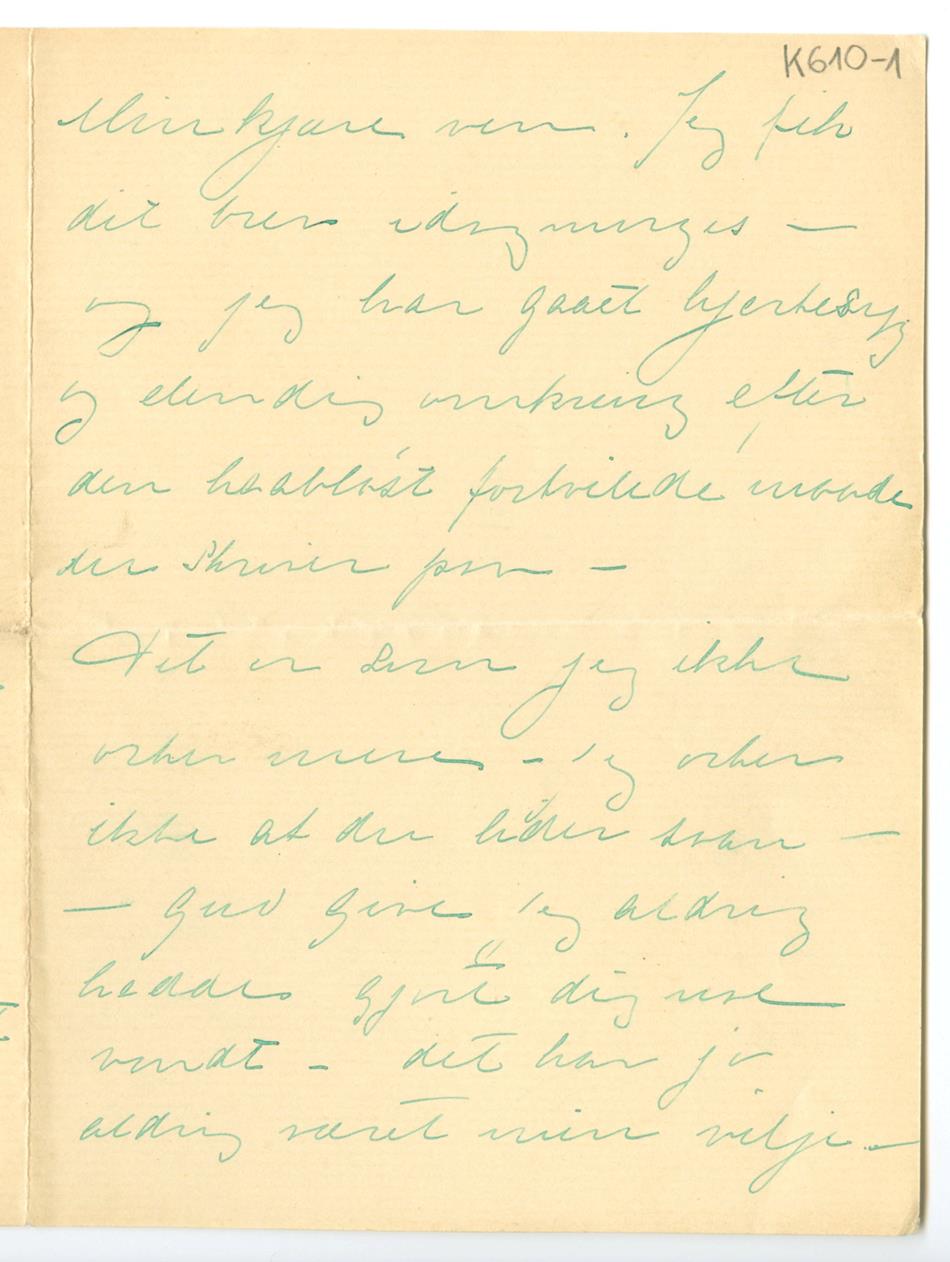 K610-1
Min kjære ven. Jeg fik
dit brev idagmorges —
og jeg har gaaet hjertesyg
og elendig omkring efter
den haabløst fortvilede maade
du skriver paa —
Det er som jeg ikke
orker mere – jeg orker
ikke at du lider saan —
— gud give jeg aldrig
hadde gjort dig noe
vondt – det har jo
aldrig været min vilje –